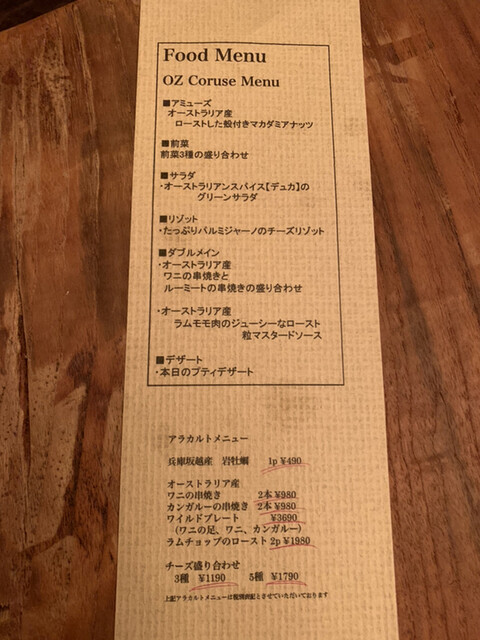 Food Menu
OZ Coruse Menu
■アミューズ
オーストラリア産
ローストした殻付きマカダミアナッツ
■前菜
前菜3種の盛り合わせ
■サラダ
・オーストラリアンスパイス【デュカ】の
グリーンサラダ
■リゾット
・たっぷりパルミジャーノのチーズリゾット
■ダブルメイン
・オーストラリア産
ワニの串焼きと
ルーミートの串焼きの盛り合わせ
・オーストラリア産
ラムモモ肉のジューシーなロースト
粒マスタードソース
■デザート
・本日のプティデザート
アラカルトメニュー
兵庫坂越産 岩牡蠣 1p ¥490
オーストラリア産
ワニの串焼き 2本 ¥980
カンガルーの串焼き 2本 ¥980
ワイルドプレート ¥3690
(ワニの足、ワニ、カンガルー)
ラムチョップのロースト 2p ¥1980
チーズ盛り合わせ
3種 ¥1190 5種 ¥1790
上記アラカルトメニューは税別表記とさせていただいております